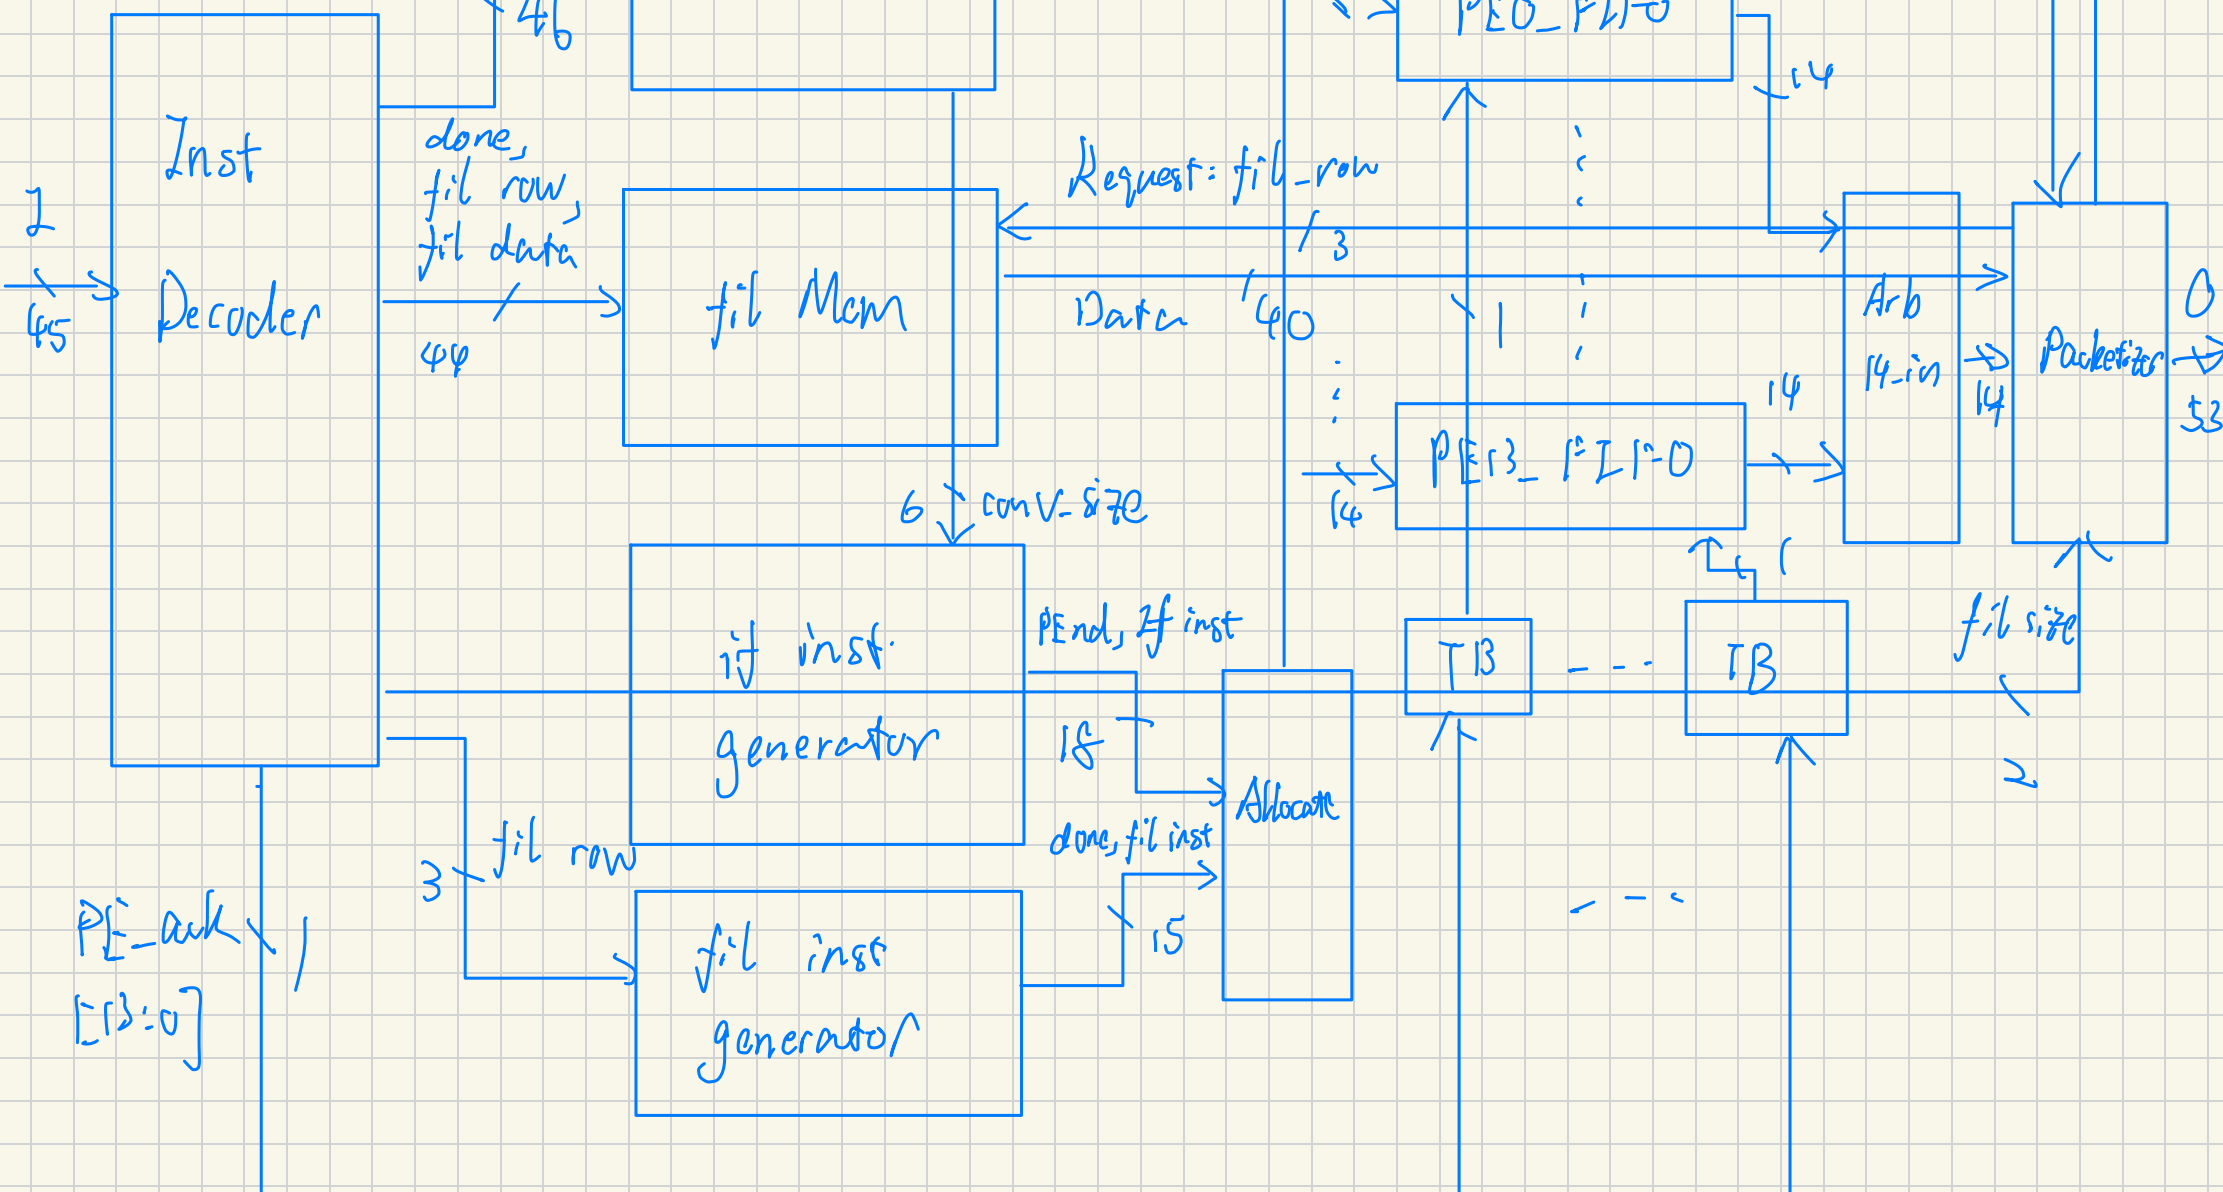 46
PE0_FIFO
14
Inst
Decoder
done,
fil row,
fil data
44
I
45
fil Mem
Request: fil_row
3
Data
40
1
Arb
14_in
14
Packetizer
O
53
14
PE13_FIFO
14
6
conv_size
1
if inst
generator
PEnd, If inst
18
Allocate
TB
- - - -
TB
fil size
2
3
fil row
done, fil inst
15
fil inst
generator
PE_ack
[13:0]
1
- - -